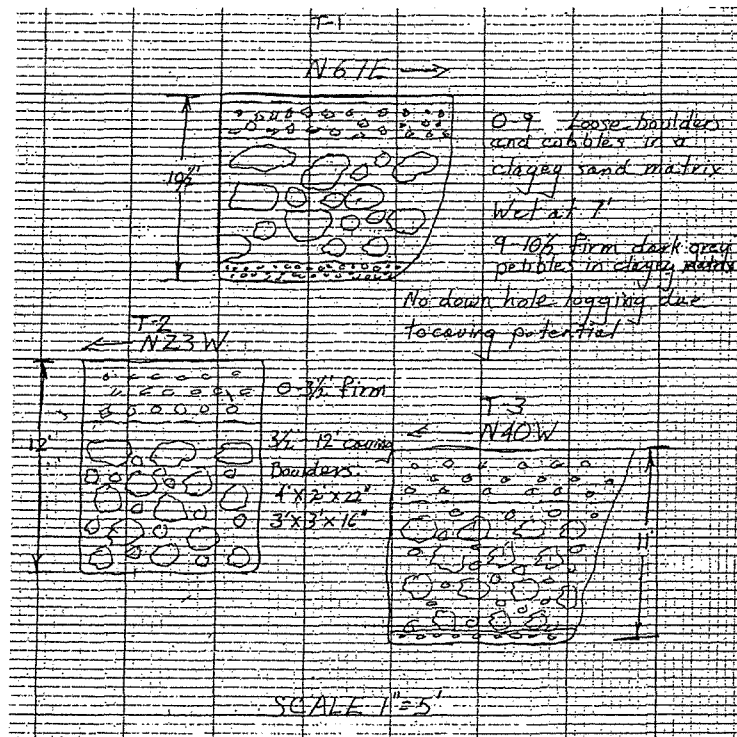 T-1
N67E
10½'
0-9 Loose boulders
and cobbles in a
clayey sand matrix
Wet at 7'
9-10½ firm dark grey
pebbles in clayey matrix
No down hole logging due
to caving potential
T-2
N23W
12'
0-3½' firm
3½-12' caving
Boulders.
4'x2'x22"
3'x3'x16"
T-3
N40W
11'
SCALE 1"=5'